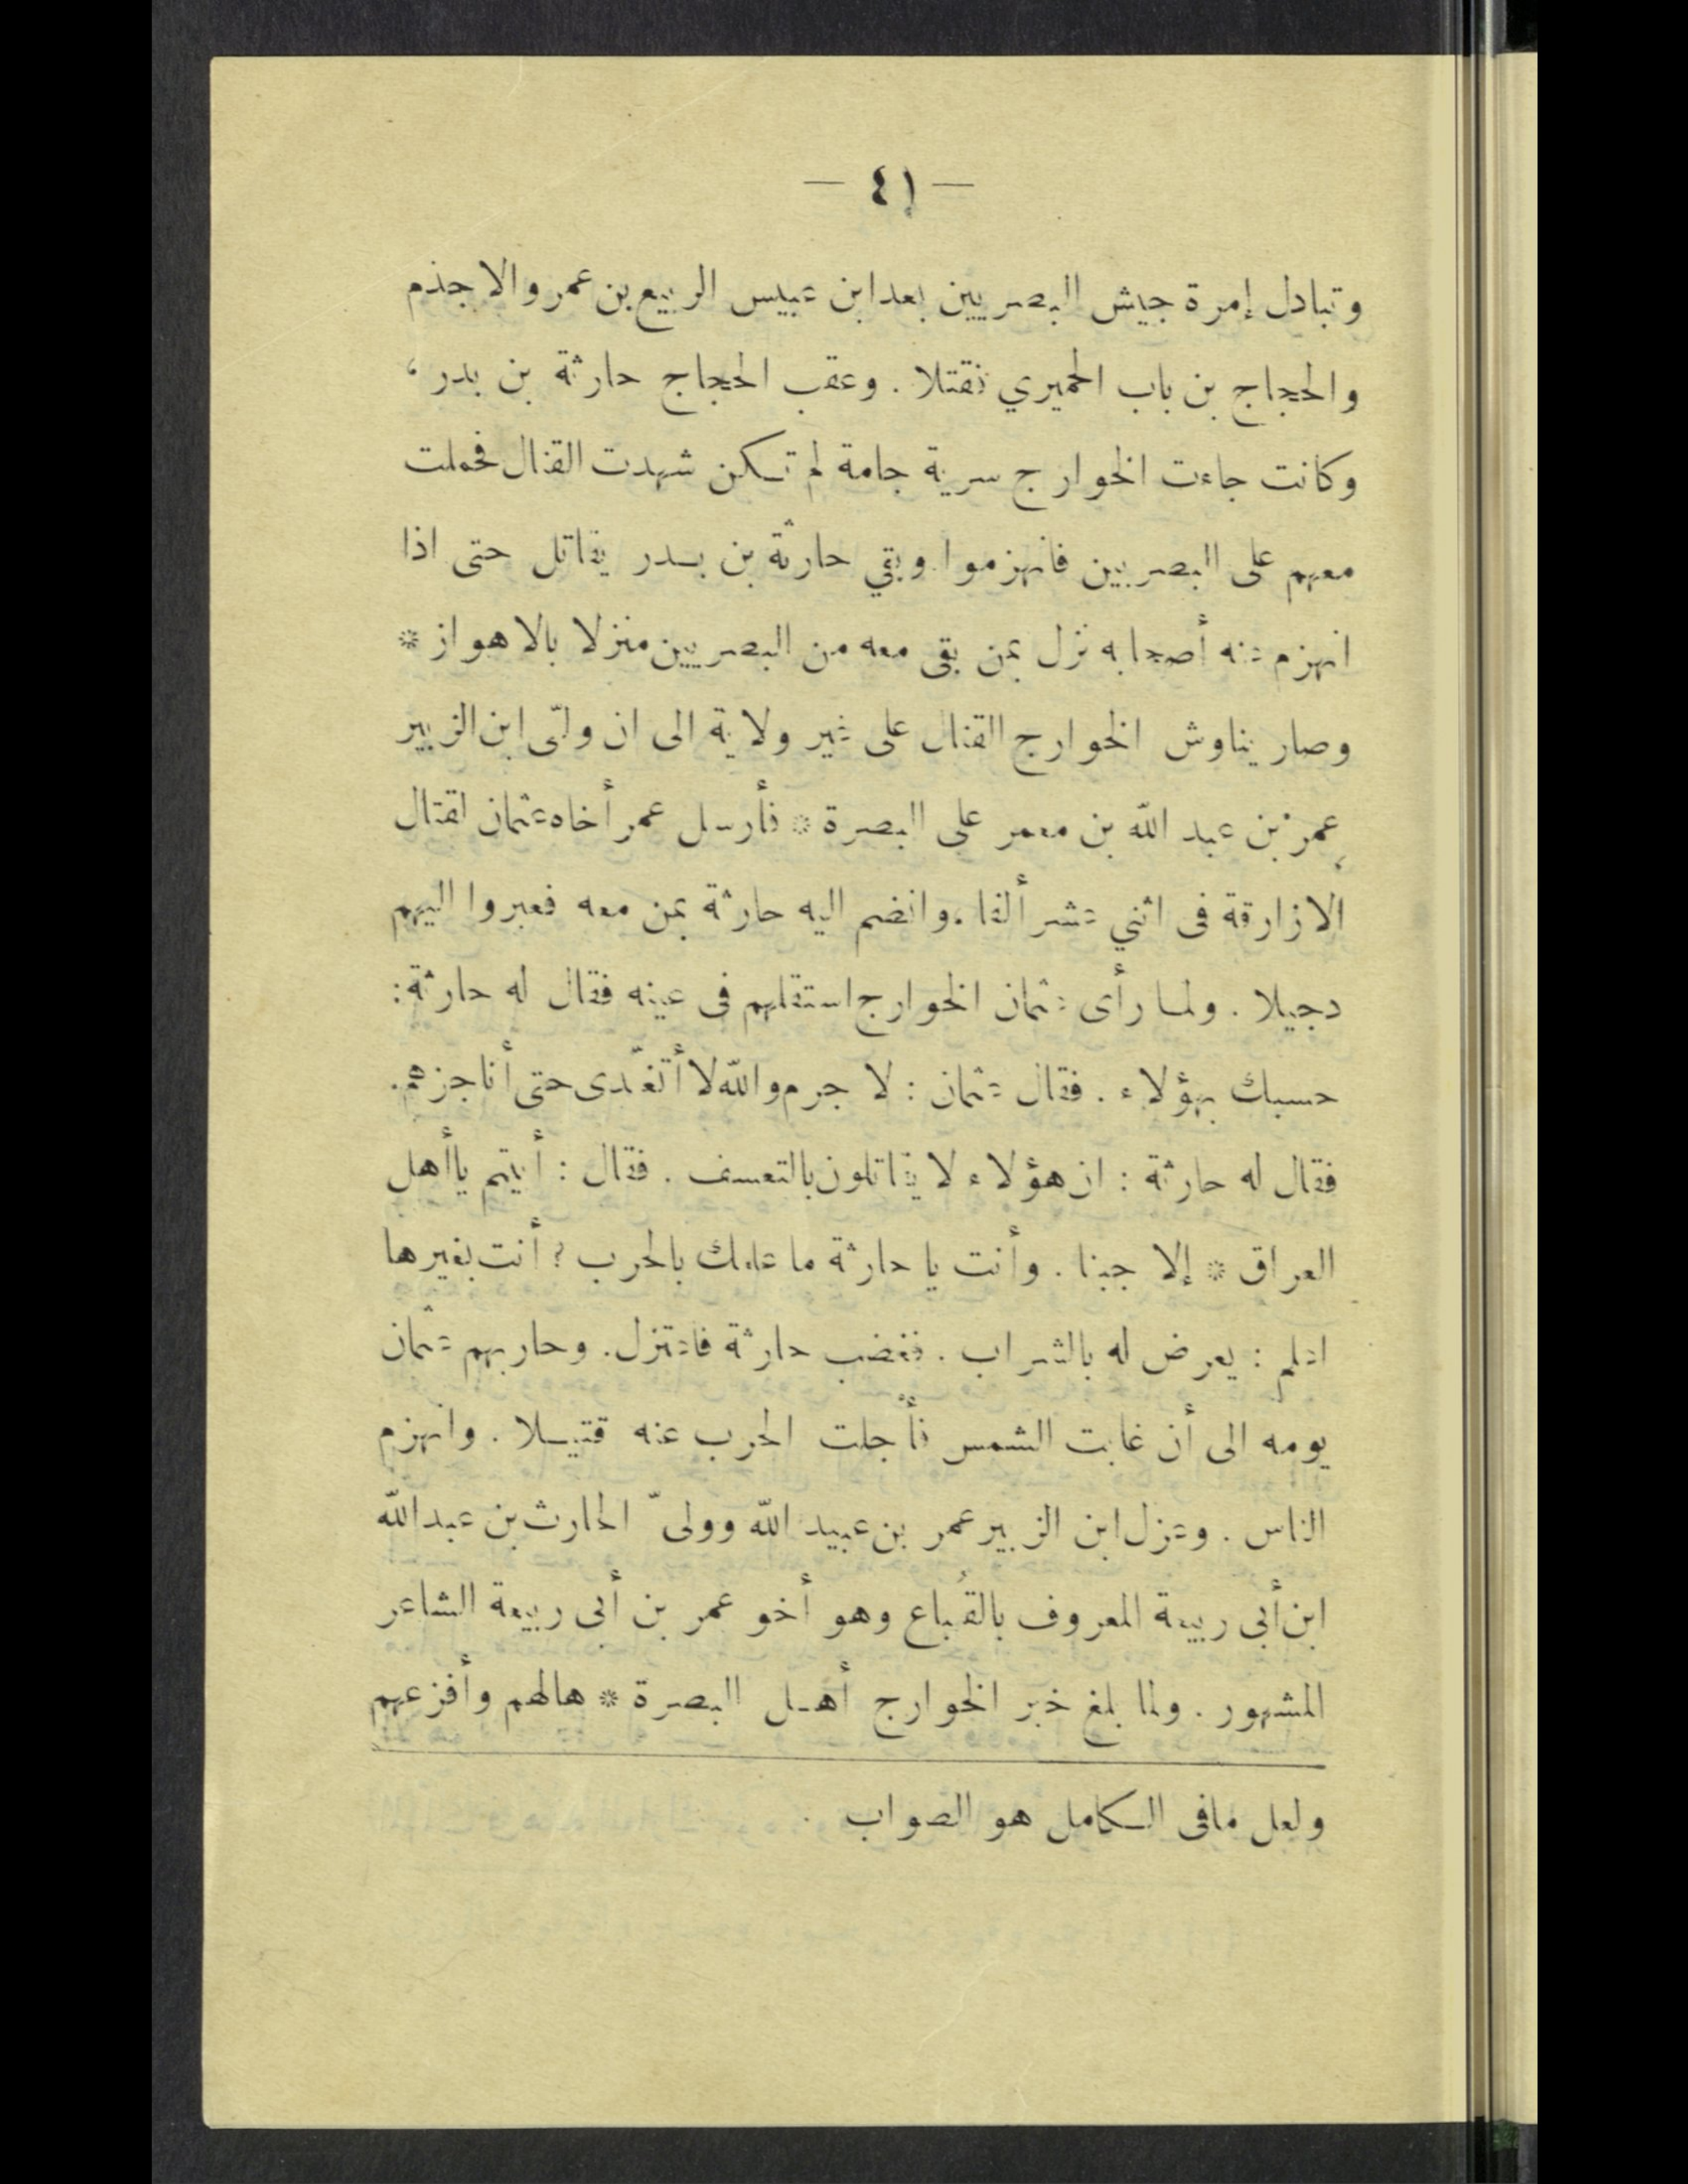 — ٤١ —
وتبادل إمرة جيش البصريين بعد ابن عبيس الربيع بن عمرو الاجذم
والحجاج بن باب الحميري فقتلا . وعقب الحجاج حارثة بن بدر ،
وكانت جاءت الخوارج سرية جامة لم تكن شهدت القتال فحملت
معهم على البصريين فانهزموا وبقي حارثة بن بدر يقاتل حتى اذا
انهزم عنه أصحابه نزل بمن بقى معه من البصريين منزلا بالاهواز *
وصار يناوش الخوارج القتال على غير ولاية الى ان ولّى ابن الزبير
عمر بن عبد الله بن معمر على البصرة * فأرسل عمر أخاه عثمان لقتال
الازارقة فى اثني عشر ألفا ، وانضم اليه حارثة بمن معه فعبروا اليهم
دجيلا . ولما رأى عثمان الخوارج استقلهم فى عينه فقال له حارثة :
حسبك بهؤلاء . فقال عثمان : لا جرم والله لا أتغدّى حتى أناجزهم .
فقال له حارثة : ان هؤلاء لا يقاتلون بالتعسف . فقال : أبيتم يا أهل
العراق * إلا جبنا . وأنت يا حارثة ما علمك بالحرب ؟ أنت بغيرها
اعلم : يعرض له بالشراب . فغضب حارثة فاعتزل . وحاربهم عثمان
يومه الى أن غابت الشمس فأجلت الحرب عنه قتيلا . وانهزم
الناس . وعزل ابن الزبير عمر بن عبيد الله وولىّ الحارث بن عبد الله
ابن أبى ربيعة المعروف بالقُباع وهو أخو عمر بن أبى ربيعة الشاعر
المشهور . ولما بلغ خبر الخوارج أهل البصرة * هالهم وأفزعهم
ولعل مافى الكامل هو الصواب .